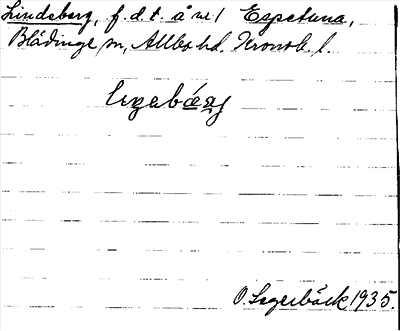 Lindeberg, f.d.t. å nr 1 Espetuna,
Blädinge sn, Allbo hd. Kronob. l.
O. Lagerbäck 1935.